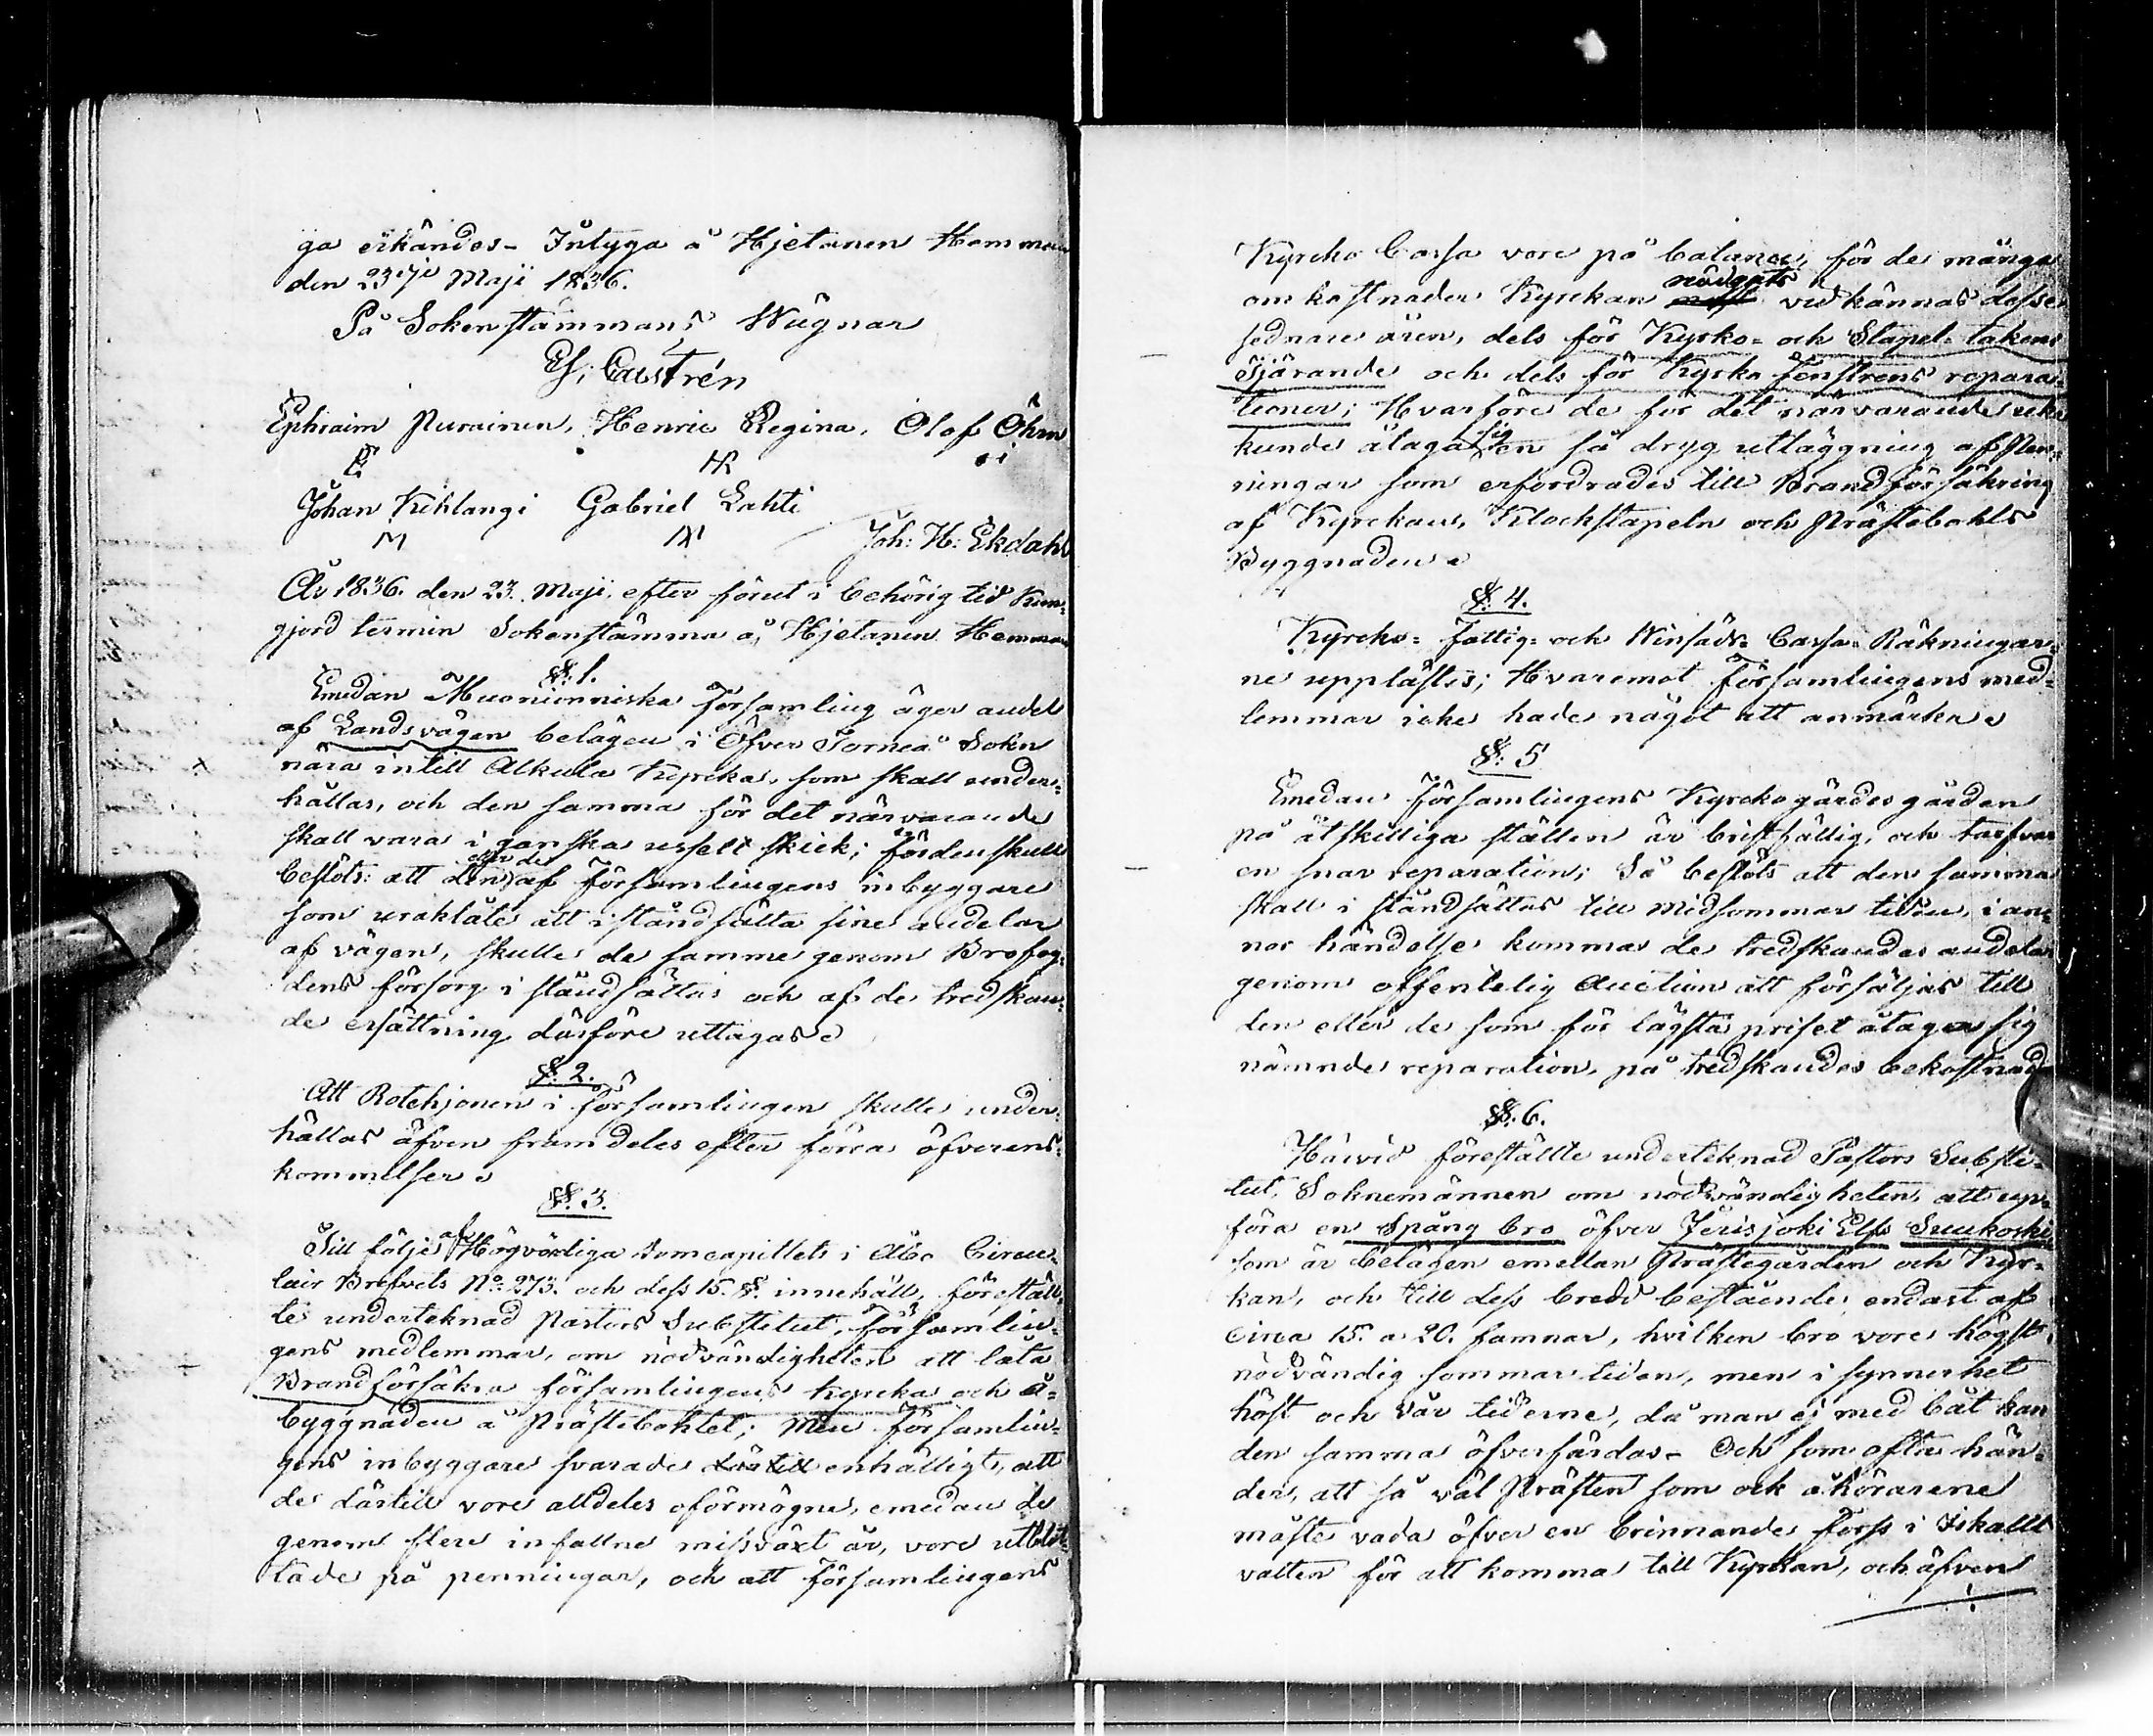 ga erkändes – Intyga å Hjetanen Hemman
den 23dje Maji 1836.
På Sokenstämmans Wägnar
Es: Castrén
Ephraim Purainen, Henric Regina, Olof Öhm
Johan Kihlangi Gabriel Lahti
Joh: H: Ekdahl
År 1836. den 23. Maji, efter förut i behörig tid kun-
gjord termin Sokenstämma å, Hjetanen Hemman
§: 1.
Emedan Muonionniska Församling äger andel
af Landsvägen belägen i Öfver Torneå Sokn
nära intill Alkula Kyrcka, som skall under-
hållas, och den samma för det närvarande
skall vara i ganska usselt skick; fördenskull
beslöts: att den eller de af Församlingens inbyggare
som uraktlåte att iståndsätta sine andelar
af vägen, skulle de samme genom Brofog-
dens försorg i ståndsättas och af de tredskan-
de ersättning därföre uttagas.
§: 2.
Att Rotehjonen i Församlingen skulle under-
hållas äfven framdeles efter förra öfverens-
kommelser.
§: 3.
Till följe af Högvördiga Domcapitlets i Åbo Circu-
lair Brefvets No: 273. och dess 15. §. innehåll, förestäl-
te underteknad Pastors Substitut, församlin-
gens medlemmar, om nödvändigheten att låta
Brandförsäkra församlingens kyrcka och å-
byggnaden å Prästebohlet; Men Församlin-
gens inbyggare svarade därtill enhälligt, att
de därtill vore alldeles oförmögne, emedan de
genom flere infallne missväxt år, vore utblot-
tade på penningar, och att Församlingens
Kyrcko Cassa vore på balance, för de många
omkostnader Kyrckan nödgats vidkännas desse
sednare åren, dels för Kyrko- och Stapel-takens
Tjärande och dels för Kyrko fenstrens repara-
tioner; Hvarföre de för det närvarande icke
kunde åtaga sig en så dryg utläggning af Pen-
ningar som erfordrades till Brandförsäkring
af Kyrckan, Klockstapeln och Prästebohls
Byggnaden.
§: 4.
Kyrcko- Fattig- och Winsäds- Cassa- Räkningar-
ne upplästes; Hvaremot Församlingens med-
lemmar icke hade något att anmärka.
§: 5
Emedan Församlingens Kyrckogärdesgården
på åtskilliga ställen är bristfällig, och tarfvar
en snar reparation; Så beslöts att den samma
skall i ståndsättas till Midsommar tiden, i an-
nor händelse komma de tredskandes andelar
genom offentelig Auction att försäljas till
den eller de som för lägsta priset åtager sig
nämnde reparation, på tredskandes bekostnad
§: 6.
Härvid förestälte underteknad Pastors Substi-
tut, Soknemännen om nödvändigheten, att upp-
föra en Spång bro öfver Jerisjoki Elfs Suukoski
som är belägen emellan Prästegården och Kyr-
kan, och till dess bredd bestående endast af
circa 15. a 20. famnar, hvilken bro vore högst
nödvändig sommar tiden, men i synnerhet
höst och vår tiderne, då man ej med båt kan
den samma öfverfärdas – Och som ofta hän-
der, att så väl Prästen som ock åhörarene
måste vada öfver en brinnande Forss i Iskallt
vatten för att komma till Kyrkan, och äfven